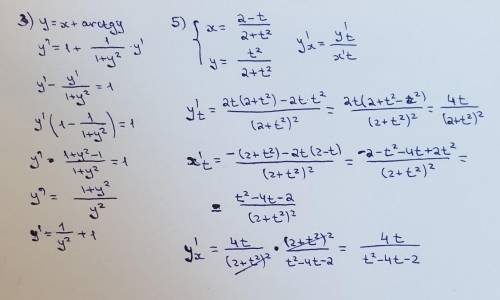 3) y = x + arctgy
y' = 1 + 1/(1+y²) · y'
y' - y'/(1+y²) = 1
y' (1 - 1/(1+y²)) = 1
y' · (1+y²-1)/(1+y²) = 1
y' = (1+y²)/y²
y' = 1/y² + 1
5) { x = (2-t)/(2+t²)
y = t²/(2+t²)
y'x = y't/x't
y't = (2t(2+t²)-2t·t²)/(2+t²)² = (2t(2+t²-t²))/(2+t²)² = 4t/(2+t²)²
x't = (-(2+t²)-2t(2-t))/(2+t²)² = (-2-t²-4t+2t²)/(2+t²)² =
= (t²-4t-2)/(2+t²)²
y'x = 4t/(2+t²)² · (2+t²)²/(t²-4t-2) = 4t/(t²-4t-2)